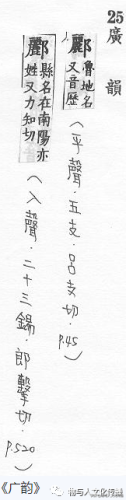 25廣韻
酈魯地名又音歷
(平聲.五支.呂支切.P.45)
酈縣名在南陽亦姓又力知切
(入聲.二十三錫.郎擊切.P.520)
《广韵》